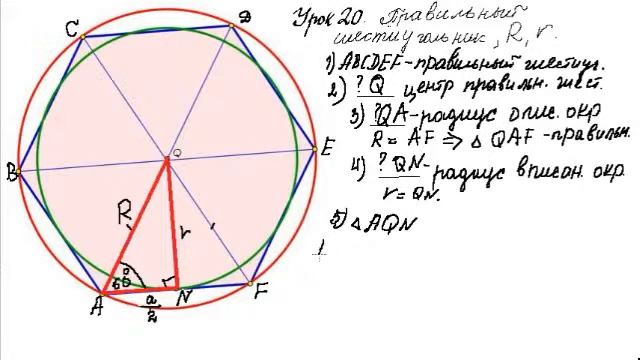 Урок 20. Правильный
шестиугольник, R, r.
1) ABCDEF - правильный шестиуг.
2) ? Q центр правильн. шест.
3) ? QA - радиус опис. окр
R = AF ⇒ △ QAF - правильн.
4) ? QN - радиус вписан. окр.
r = QN.
5) △ AQN
C
D
B
E
Q
R
r
60°
A
a/2
N
F